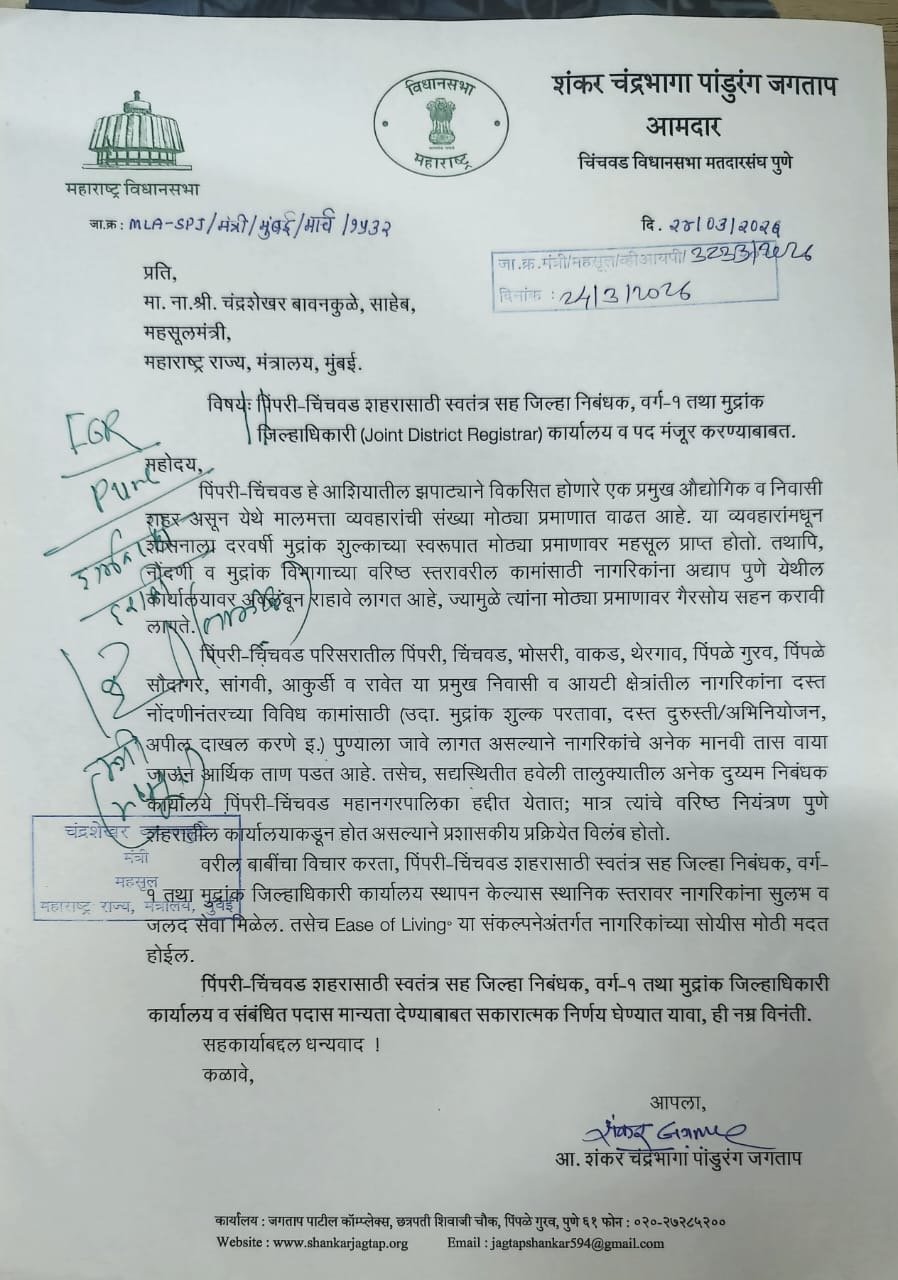 विधानसभा
महाराष्ट्र
महाराष्ट्र विधानसभा
शंकर चंद्रभागा पांडुरंग जगताप
आमदार
चिंचवड विधानसभा मतदारसंघ पुणे
जा.क्र : MLA-SPJ/मंत्री/मुंबई/मार्च/१५३२
दि. २४/03/२०२६
जा.क्र.मंत्री/महसूल/व्हीआयपी/ 3233/2026
दिनांक : 24/3/2026
प्रति,
मा. ना.श्री. चंद्रशेखर बावनकुळे, साहेब,
महसूलमंत्री,
महाराष्ट्र राज्य, मंत्रालय, मुंबई.
विषयः पिंपरी-चिंचवड शहरासाठी स्वतंत्र सह जिल्हा निबंधक, वर्ग-१ तथा मुद्रांक
जिल्हाधिकारी (Joint District Registrar) कार्यालय व पद मंजूर करण्याबाबत.
IGR
Pune
महोदय,
पिंपरी-चिंचवड हे आशियातील झपाट्याने विकसित होणारे एक प्रमुख औद्योगिक व निवासी
शहर असून येथे मालमत्ता व्यवहारांची संख्या मोठ्या प्रमाणात वाढत आहे. या व्यवहारांमधून
शासनाला दरवर्षी मुद्रांक शुल्काच्या स्वरूपात मोठ्या प्रमाणावर महसूल प्राप्त होतो. तथापि,
नोंदणी व मुद्रांक विभागाच्या वरिष्ठ स्तरावरील कामांसाठी नागरिकांना अद्याप पुणे येथील
कार्यालयावर अवलंबून राहावे लागत आहे, ज्यामुळे त्यांना मोठ्या प्रमाणावर गैरसोय सहन करावी
लागते.
पिंपरी-चिंचवड परिसरातील पिंपरी, चिंचवड, भोसरी, वाकड, थेरगाव, पिंपळे गुरव, पिंपळे
सौदागरे, सांगवी, आकुर्डी व रावेत या प्रमुख निवासी व आयटी क्षेत्रांतील नागरिकांना दस्त
नोंदणीनंतरच्या विविध कामांसाठी (उदा. मुद्रांक शुल्क परतावा, दस्त दुरुस्ती/अभिनियोजन,
अपील दाखल करणे इ.) पुण्याला जावे लागत असल्याने नागरिकांचे अनेक मानवी तास वाया
जाऊन आर्थिक ताण पडत आहे. तसेच, सद्यस्थितीत हवेली तालुक्यातील अनेक दुय्यम निबंधक
कार्यालये पिंपरी-चिंचवड महानगरपालिका हद्दीत येतात; मात्र त्यांचे वरिष्ठ नियंत्रण पुणे
शहरातील कार्यालयाकडून होत असल्याने प्रशासकीय प्रक्रियेत विलंब होतो.
चंद्रशेखर
मंत्री
महसूल
महाराष्ट्र राज्य, मंत्रालय, मुंबई
वरील बाबींचा विचार करता, पिंपरी-चिंचवड शहरासाठी स्वतंत्र सह जिल्हा निबंधक, वर्ग-
१ तथा मुद्रांक जिल्हाधिकारी कार्यालय स्थापन केल्यास स्थानिक स्तरावर नागरिकांना सुलभ व
जलद सेवा मिळेल. तसेच Ease of Living° या संकल्पनेअंतर्गत नागरिकांच्या सोयीस मोठी मदत
होईल.
पिंपरी-चिंचवड शहरासाठी स्वतंत्र सह जिल्हा निबंधक, वर्ग-१ तथा मुद्रांक जिल्हाधिकारी
कार्यालय व संबंधित पदास मान्यता देण्याबाबत सकारात्मक निर्णय घेण्यात यावा, ही नम्र विनंती.
सहकार्याबद्दल धन्यवाद !
कळावे,
आपला,
आ. शंकर चंद्रभागा पांडुरंग जगताप
कार्यालय : जगताप पाटील कॉम्प्लेक्स, छत्रपती शिवाजी चौक, पिंपळे गुरव, पुणे ६१ फोन : ०२०-२७२८५२००
Website : www.shankarjagtap.org Email : jagtapshankar594@gmail.com